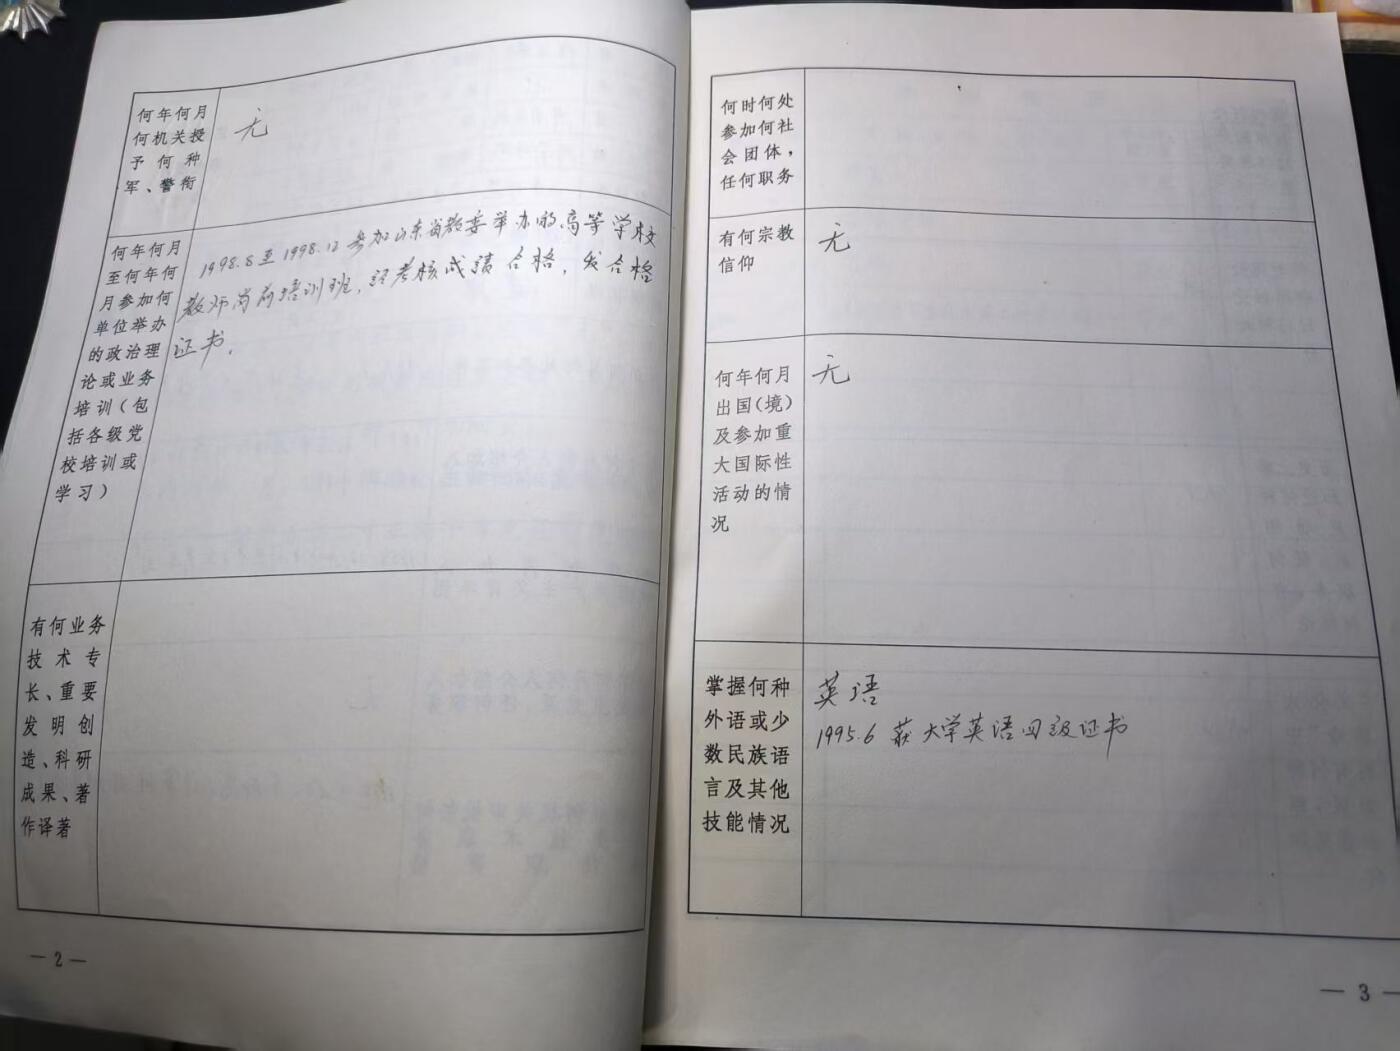 何年何月
何机关授
予何种
军、警衔
无
何年何月
至何年何
月参加何
单位举办
的政治理
论或业务
培训(包
括各级党
校培训或
学习)
1998.8至1998.12参加山东省教委举办的高等学校
教师岗前培训班,经考核成绩合格,发合格
证书.
有何业务
技术专
长、重要
发明创
造、科研
成果、著
作译著
— 2 —
何时何处
参加何社
会团体,
任何职务
有何宗教
信仰
无
何年何月
出国(境)
及参加重
大国际性
活动的情
况
无
掌握何种
外语或少
数民族语
言及其他
技能情况
英语
1995.6 获大学英语四级证书
— 3 —